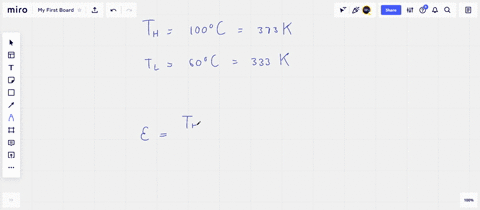 miro My First Board Share
T_H = 100°C = 373 K
T_L = 60°C = 333 K
ε = T_H
100%